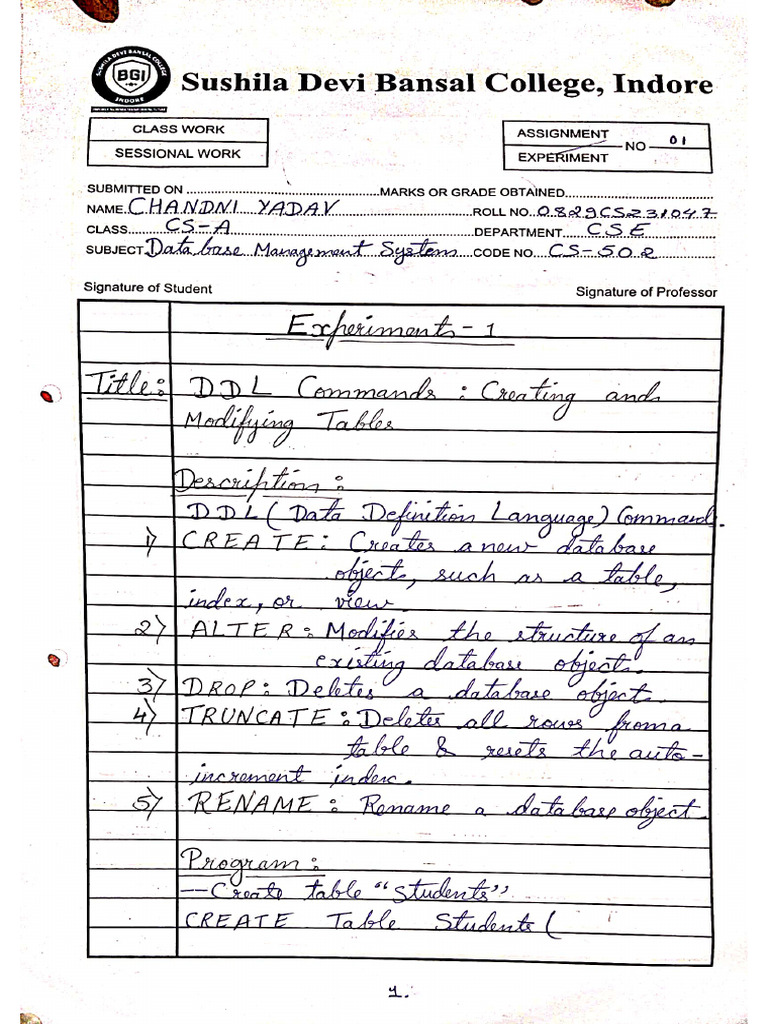 SUSHILA DEVI BANSAL COLLEGE
BGI
INDORE
Sushila Devi Bansal College, Indore
CLASS WORK
SESSIONAL WORK
ASSIGNMENT
EXPERIMENT
NO 01
SUBMITTED ON ........ MARKS OR GRADE OBTAINED........
NAME. CHANDNI YADAV ROLL NO. 0829CS231047
CLASS CS-A DEPARTMENT CSE
SUBJECT Data base Management System CODE NO. CS-502
Signature of Student Signature of Professor
Experiments - 1
Title: DDL Commands : Creating and
Modifying Tables
Description :
DDL (Data Definition Language) Command.
1) CREATE : Creates a new database
object, such as a table,
index, or view.
2) ALTER : Modifies the structure of an
existing database object.
3) DROP : Deletes a database object.
4) TRUNCATE : Deletes all rows from a
table & resets the auto-
increment index.
5) RENAME : Rename a database object.
Program :
-- Create table "Students"
CREATE Table Students (
1.